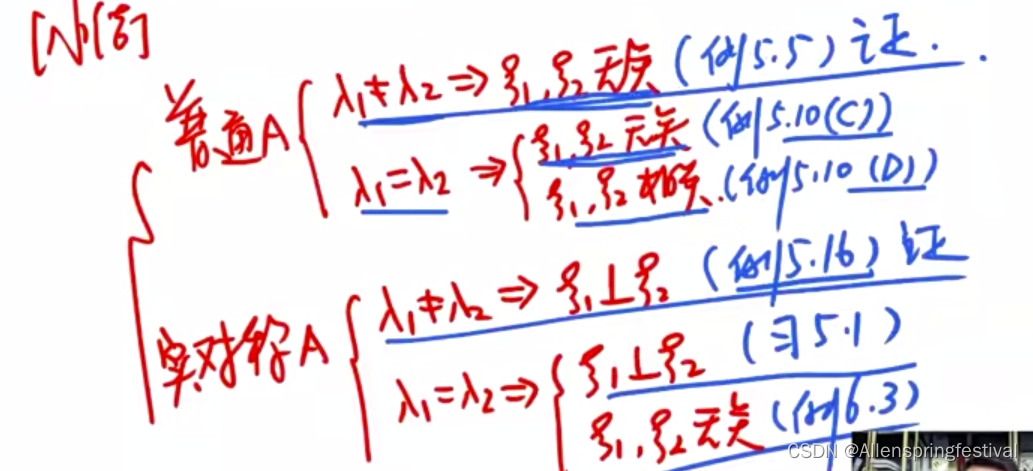 [小结]
普通A
λ₁≠λ₂ ⇒ ξ₁,ξ₂ 无关 (例5.5) 证.
λ₁=λ₂ ⇒
ξ₁,ξ₂ 无关 (例5.10(C))
ξ₁,ξ₂ 相关. (例5.10(D))
实对称A
λ₁≠λ₂ ⇒ ξ₁⊥ξ₂ (例5.16) 证
λ₁=λ₂ ⇒
ξ₁⊥ξ₂ (习5.1)
ξ₁,ξ₂ 无关 (例6.3)
CSDN @Allenspringfestival